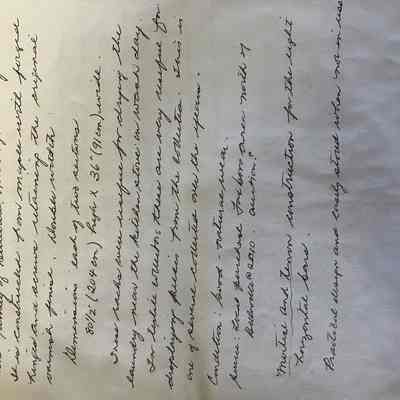 it is constructed from maple with forged
hinges and screws retaining the original
varnish finish. Double width
Dimensions each of two sections
80 1/2" (204 cm) high x 36" (91 cm) wide.
These racks were useful for drying the
laundry near the kitchen stove in wash day.
For textile collectors these are very useful for
displaying pieces from the collection. This is
one of several collected over the years.
Condition: good - natural wear.
piece: local purchase from area north of
2010. auction?
Mortise and tenon construction for the eight
horizontal bars.
Practical design and easily stored when not in use